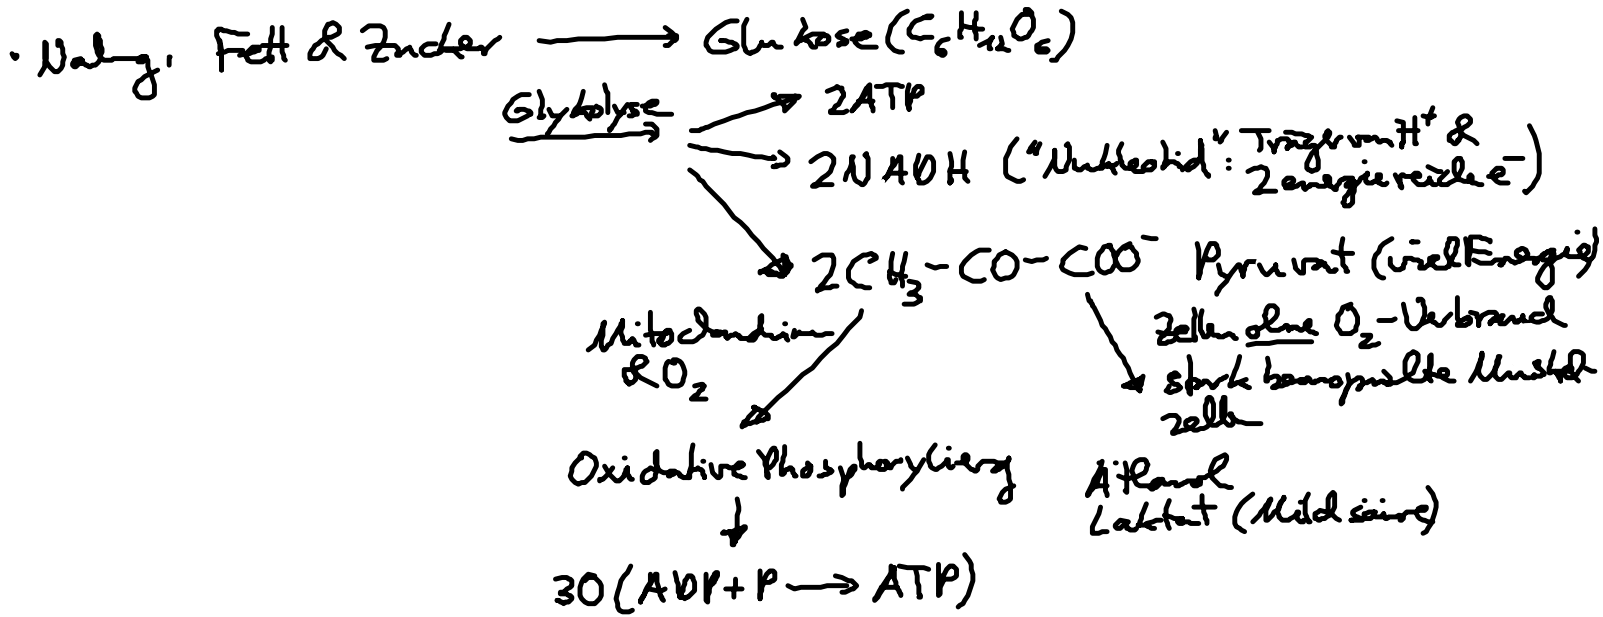 · Nahrg. Fett & Zucker → Glukose (C₆H₁₂O₆)
Glykolyse → 2ATP
→ 2NADH ("Nukleotid": Träger von H⁺ &
2 energiereiche e⁻)
→ 2CH₃-CO-COO⁻ Pyruvat (viel Energie)
Mitochondrium
& O₂
Zellen ohne O₂-Verbrauch
stark beanspruchte Muskel
zellen
Oxidative Phosphorylierung
Äthanol
Laktat (Milchsäure)
30(ADP+P → ATP)